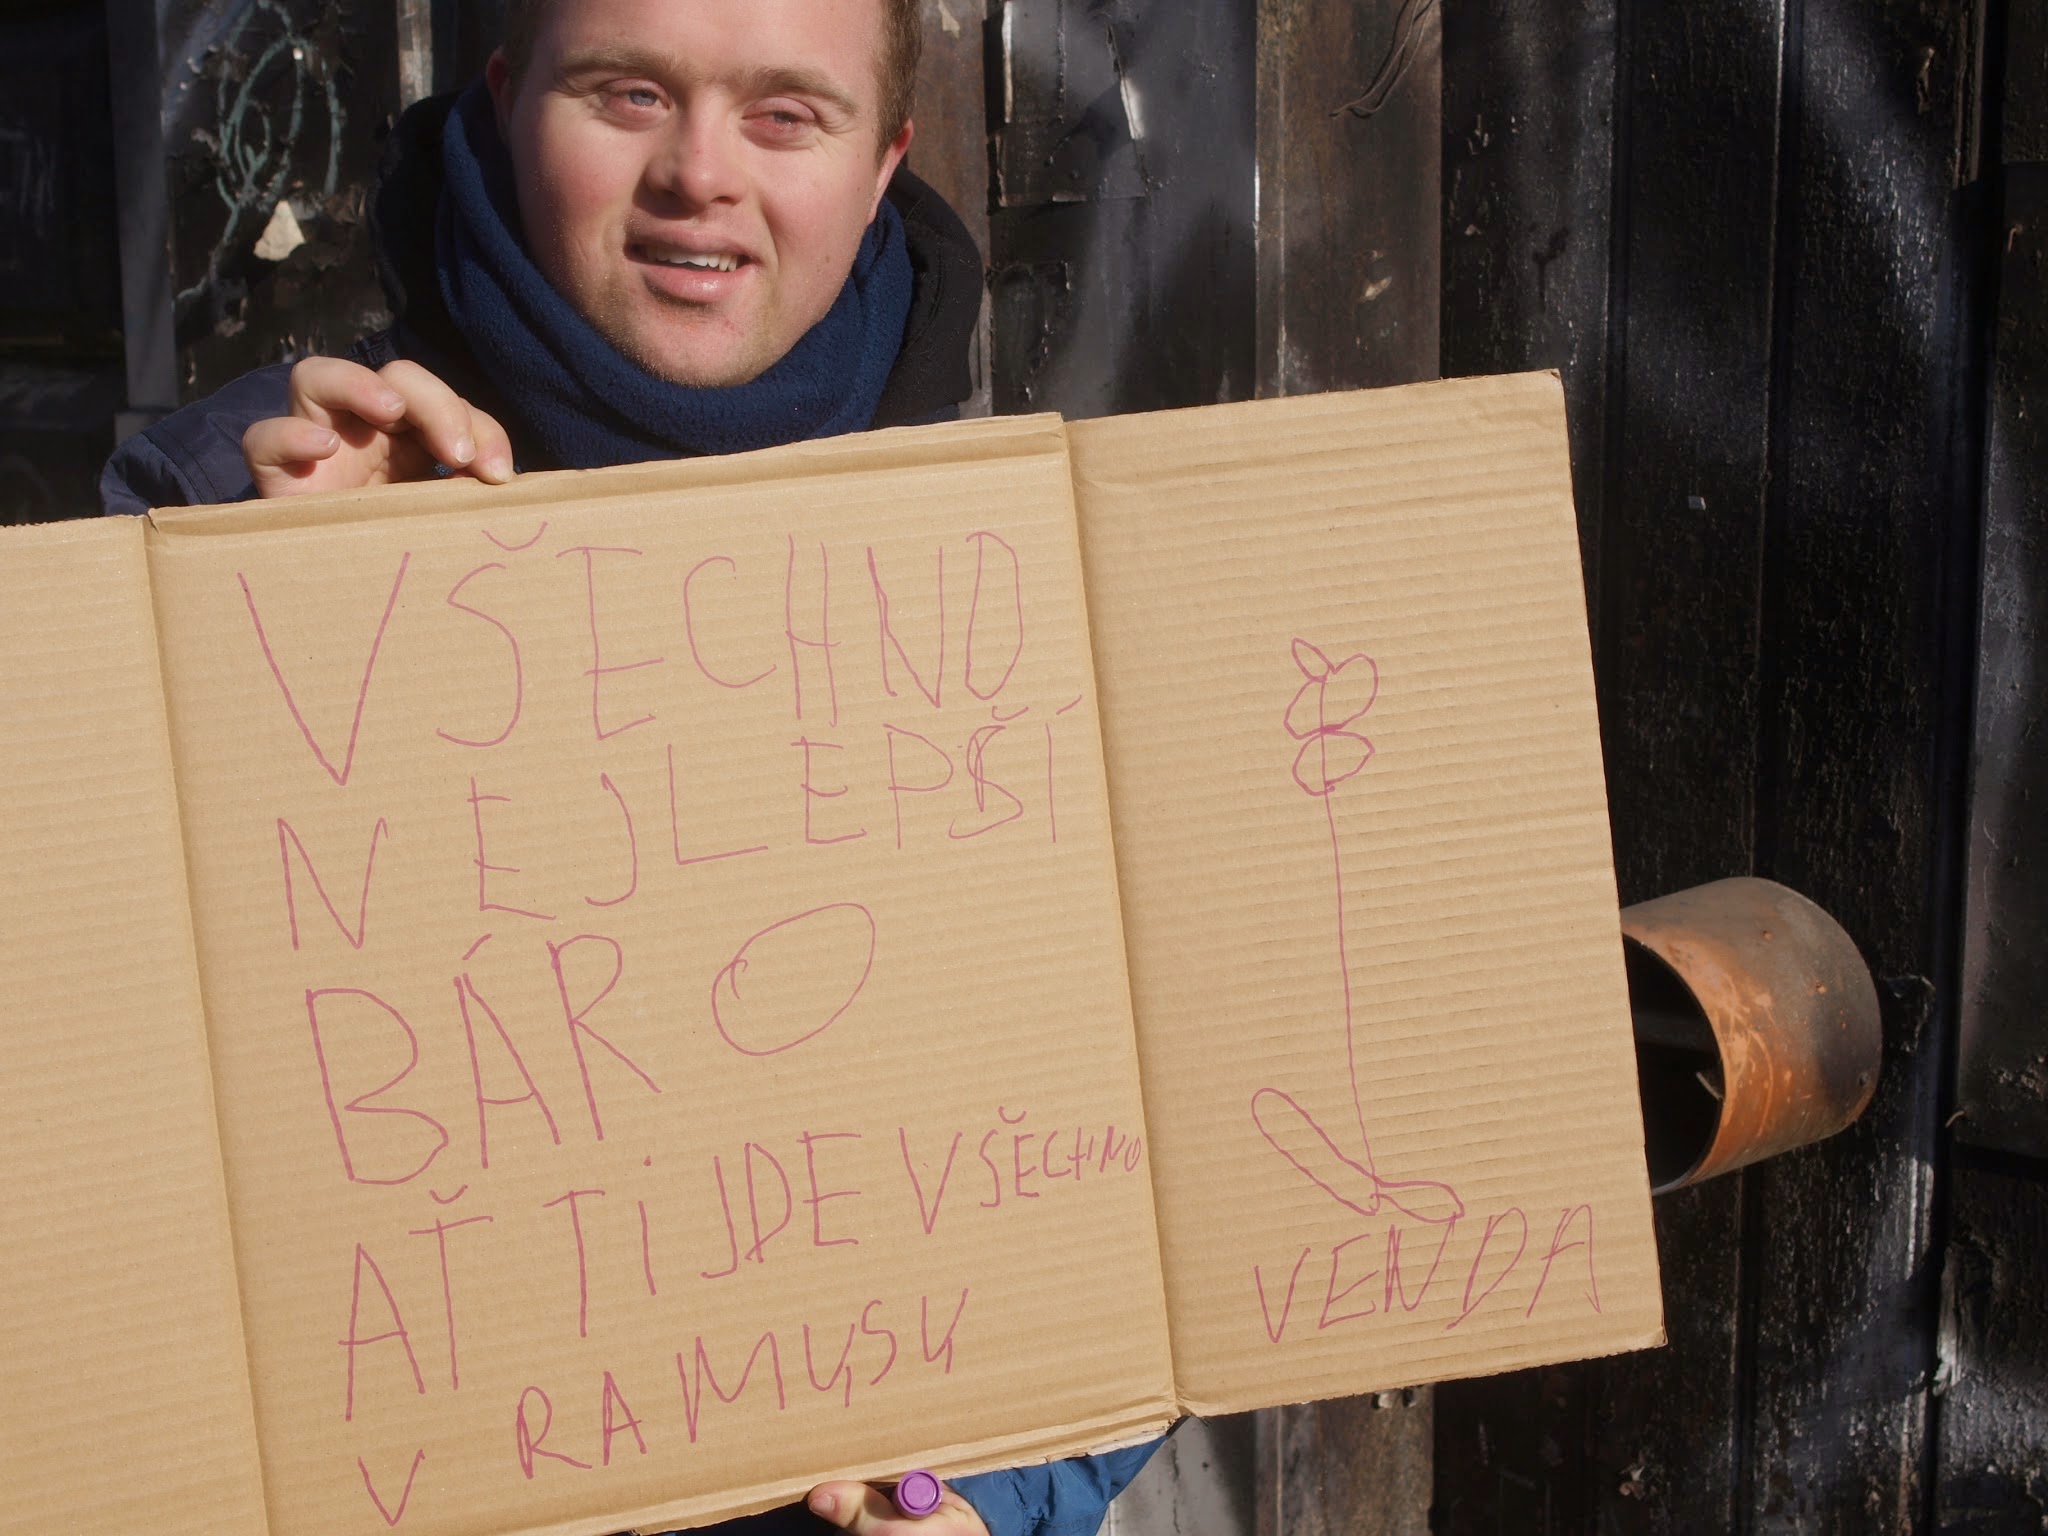 VŠECHNO
NEJLEPŠÍ
BÁRO
AŤ Ti JDE VŠECHNO
V RAMUSU
VENDA